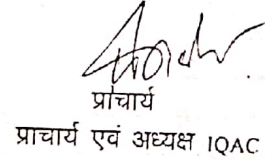 प्राचार्य
प्राचार्य एवं अध्यक्ष IQAC